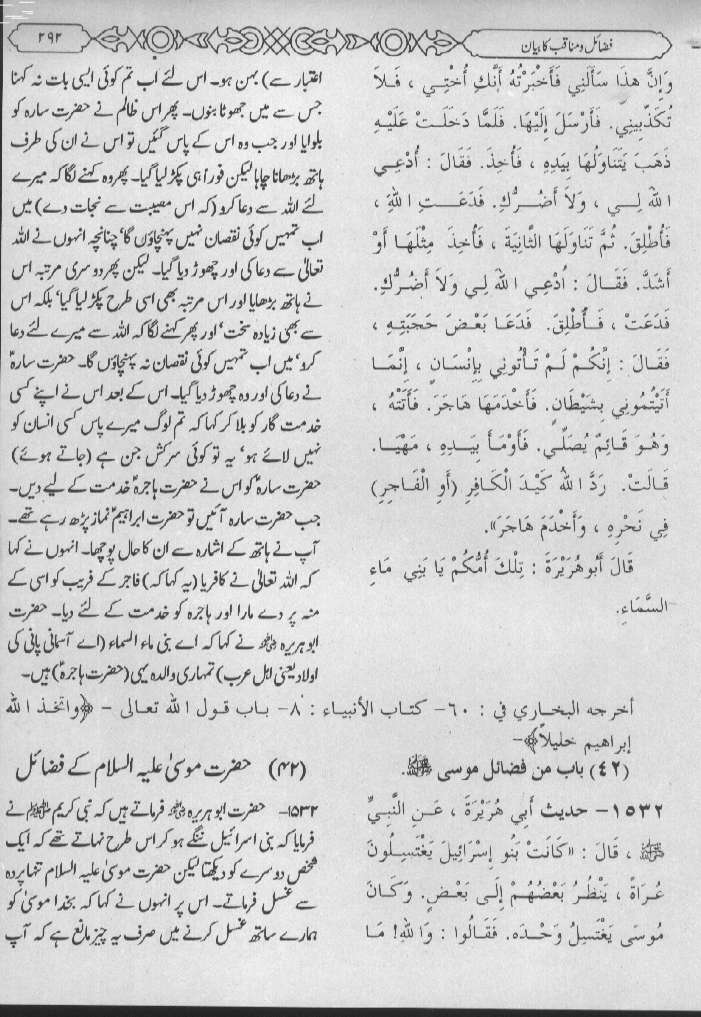 فضائل ومناقب کا بیان
۲۹۲
وَإِنَّ هذَا سَأَلَنِي فَأَخْبَرْتُهُ أَنَّكِ أُخْتِي ، فَلاَ
تُكَذِّبِينِي. فَأَرْسَلَ إِلَيْهَا. فَلَمَّا دَخَلَتْ عَلَيْهِ
ذَهَبَ يَتَنَاوَلُهَا بِيَدِهِ ، فَأُخِذَ. فَقَالَ : أُدْعِي
اللهَ لِي ، وَلاَ أَضُرُّكِ. فَدَعَتِ اللهَ ،
فَأُطْلِقَ. ثُمَّ تَنَاوَلَهَا الثَّانِيَةَ ، فَأُخِذَ مِثْلَهَا أَوْ
أَشَدَّ. فَقَالَ : اُدْعِي اللهَ لِي وَلاَ أَضُرُّكِ.
فَدَعَتْ ، فَأُطْلِقَ. فَدَعَا بَعْضَ حَجَبَتِهِ ،
فَقَالَ : إِنَّكُمْ لَمْ تَأْتُونِي بِإِنْسَانٍ ، إِنَّمَا
أَتَيْتُمُونِي بِشَيْطَانٍ. فَأَخْدَمَهَا هَاجَرَ. فَأَتَتْهُ ،
وَهُوَ قَائِمٌ يُصَلِّي. فَأَوْمَأَ بِيَدِهِ ، مَهْيَا.
قَالَتْ. رَدَّ اللهُ كَيْدَ الْكَافِرِ (أَوِ الْفَاجِرِ)
فِي نَحْرِهِ ، وَأَخْدَمَ هَاجَرَ».
قَالَ أَبُو هُرَيْرَةَ : تِلْكَ أُمُّكُمْ يَا بَنِي مَاءِ
السَّمَاءِ.
اعتبار سے) بہن ہو۔ اس لئے اب تم کوئی ایسی بات نہ کہنا
جس سے میں جھوٹا بنوں۔ پھر اس ظالم نے حضرت سارہ کو
بلوایا اور جب وہ اس کے پاس گئیں تو اس نے ان کی طرف
ہاتھ بڑھانا چاہا لیکن فوراً ہی پکڑ لیا گیا۔ پھر وہ کہنے لگا کہ میرے
لئے اللہ سے دعا کرو (کہ اس مصیبت سے نجات دے) میں
اب تمہیں کوئی نقصان نہیں پہنچاؤں گا، چنانچہ انہوں نے اللہ
تعالیٰ سے دعا کی اور چھوڑ دیا گیا۔ لیکن پھر دوسری مرتبہ اس
نے ہاتھ بڑھایا اور اس مرتبہ بھی اسی طرح پکڑ لیا گیا، بلکہ اس
سے بھی زیادہ سخت، اور پھر کہنے لگا کہ اللہ سے میرے لئے دعا
کرو، میں اب تمہیں کوئی نقصان نہ پہنچاؤں گا۔ حضرت سارہؑ
نے دعا کی اور وہ چھوڑ دیا گیا۔ اس کے بعد اس نے اپنے کسی
خدمت گار کو بلا کر کہا کہ تم لوگ میرے پاس کسی انسان کو
نہیں لائے ہو، یہ تو کوئی سرکش جن ہے (جاتے ہوئے)
حضرت سارہؑ کو اس نے حضرت ہاجرہؑ خدمت کے لیے دیں۔
جب حضرت سارہ آئیں تو حضرت ابراہیمؑ نماز پڑھ رہے تھے۔
آپ نے ہاتھ کے اشارہ سے ان کا حال پوچھا۔ انہوں نے کہا
کہ اللہ تعالیٰ نے کافر یا (یہ کہا کہ) فاجر کے فریب کو اسی کے
منہ پر دے مارا اور ہاجرہ کو خدمت کے لئے دیا۔ حضرت
ابو ہریرہ رضی اللہ عنہ نے کہا کہ اے بنی ماء السماء (اے آسمانی پانی کی
اولاد یعنی اہل عرب) تمہاری والدہ یہی (حضرت ہاجرہؑ) ہیں۔
أخرجه البخاري في : ٦٠- كتاب الأنبياء : ٨- باب قول الله تعالى – ﴿واتخذ الله
إبراهيم خليلاً﴾-
(٤٢) باب من فضائل موسى ﷺ.
(۴۲) حضرت موسیٰ علیہ السلام کے فضائل
١٥٣٢- حديث أَبِي هُرَيْرَةَ ، عَنِ النَّبِيِّ
ﷺ ، قَالَ : «كَانَتْ بَنُو إِسْرَائِيلَ يَغْتَسِلُونَ
عُرَاةً ، يَنْظُرُ بَعْضُهُمْ إِلَى بَعْضٍ. وَكَانَ
مُوسَى يَغْتَسِلُ وَحْدَه. فَقَالُوا : وَاللهِ! مَا
۱۵۳۲- حضرت ابو ہریرہ رضی اللہ عنہ فرماتے ہیں کہ نبی کریم ﷺ نے
فرمایا کہ بنی اسرائیل ننگے ہو کر اس طرح نہاتے تھے کہ ایک
شخص دوسرے کو دیکھتا لیکن حضرت موسیٰ علیہ السلام تنہا پردہ
سے غسل فرماتے۔ اس پر انہوں نے کہا کہ بخدا موسیٰ کو
ہمارے ساتھ غسل کرنے میں صرف یہ چیز مانع ہے کہ آپ